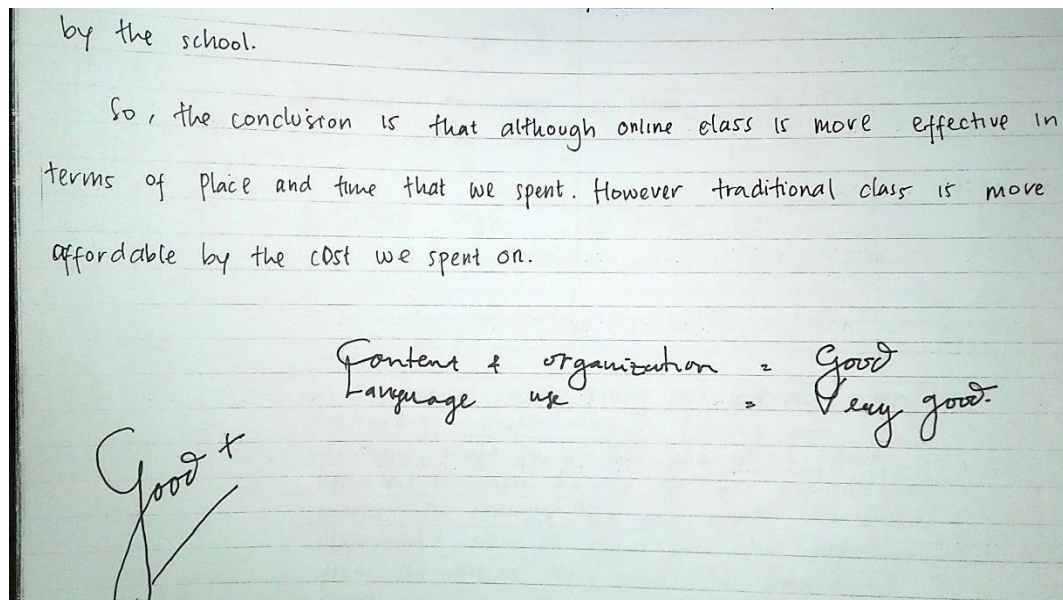 by the school.
So, the conclusion is that although online class is more effective in
terms of place and time that we spent. However traditional class is more
affordable by the cost we spent on.
Content & organization = Good
Language use = Very good.
Good +